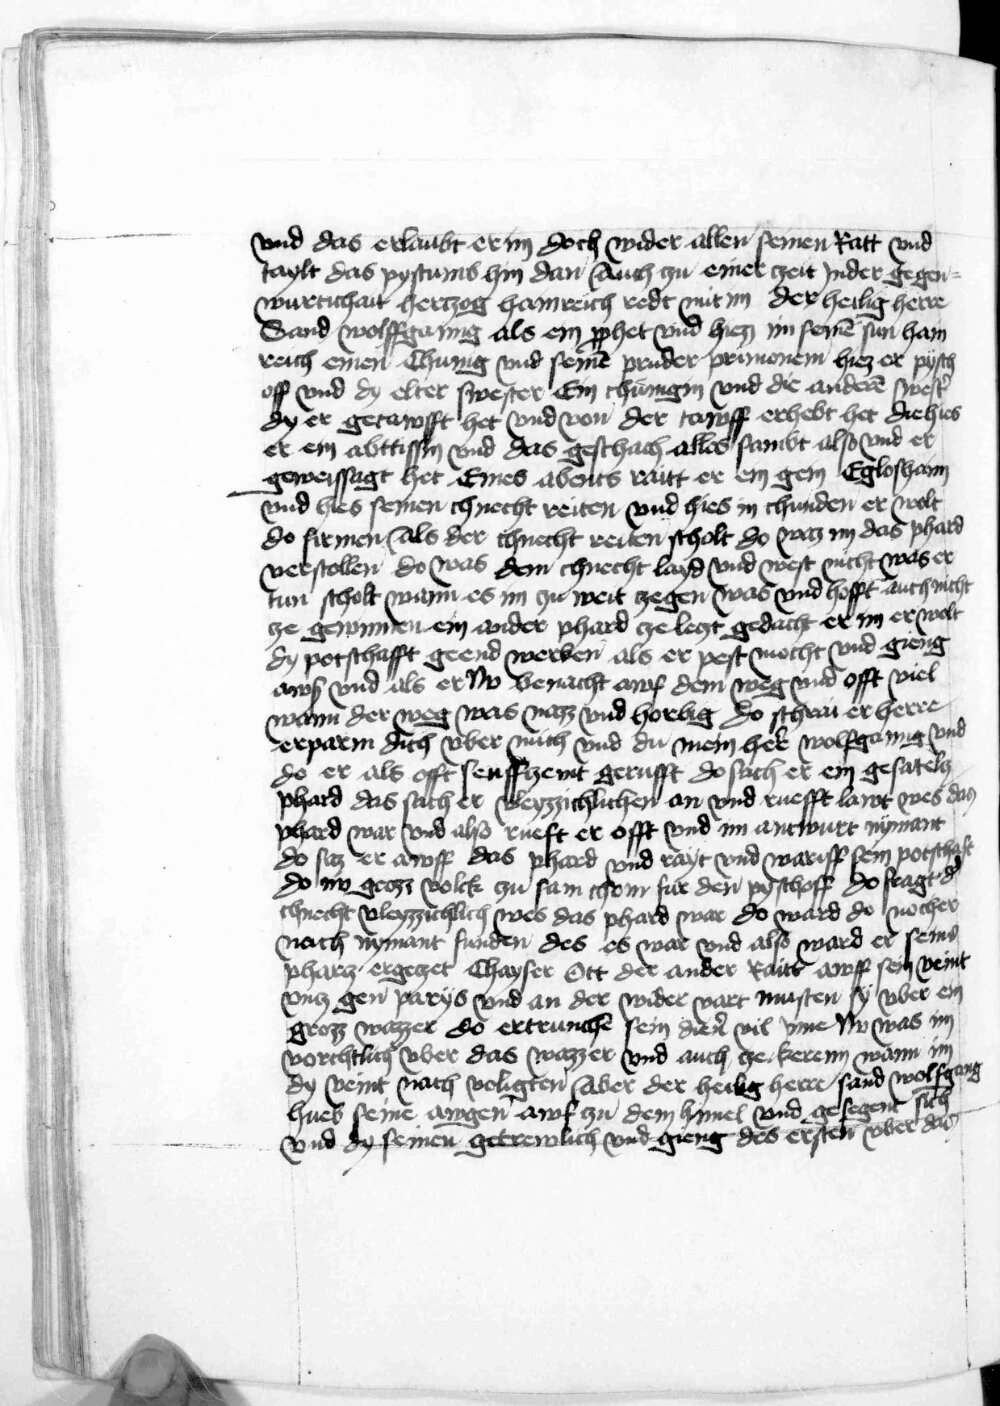 vnd das erlaubt er im doch wider allen seinen Ratt vnd
taylt das pystumb hin dan Auch zu einer zeit Inder gegen=
wurtichait hertzog hainreich redt mit im der heilig herre
Sand wolffgannig als ein ꝓphet vnd hiez im seinē sun hain
reich einen Chunig vnd seinē pruder prunonem hiez er pysch
off vnd dy elter swester Ein chunigin vnd die anderē swest̄
dy er getawfft het vnd von der tawff erhebt het die hies
er ein abttissin vnd das geschach alles sambt also vnd er
geweissagt het Eines abents raitt er ein gein Eglofhaim
vnd hies seinen chnecht reiten vnd hies in chunden er wolt
do firmen Als der chnecht reiten scholt do waz im das phard
verstollen do was dem chnecht layd vnd west nicht was er
tun scholt wann es im zu weit zegen was vnd hofft auch nicht
ze gewinnen ein ander phard ze leczt gedacht er im er wolt
dy potschafft geend werben als er pest mocht vnd gieng
aws vnd als er Nv benacht awf dem weg vnd offt viel
wann der weg was nazz vnd horbig do schrai er herre
erparm dich vber mich vnd du mein her̄ wolfgannig vnd
do er als offt seuffzent gerufft do sach er ein gesatelz
phard das sach er vleyzzichlichen an vnd ruefft lawt wes das
phard war vnd also rueft er offt vnd im antwurt nymant
do saz er awff das phard vnd rayt vnd wariff sein potschaft
do nv grozz volck zu sam chom fur den pyschoff do fragt d̄
chnecht vleyzzichlich wes das phard war do ward do nocher
nach nymant funden des es war vnd also ward er seins
phardz ergetzet Chayser Ott der ander Raitt awff sein veint
vntz gen parys vnd an der wider vart musten sy vber ein
grozz wazzer do ertrunchē sein dien̄ vil Inne Nv was im
vorchtlich vber das wazzer vnd auch ze kerenn wann im
dy veint nach voligten Aber der heilig herre sand wolfgang
hueb seine awgen awf zu dem himel vnd gesegent sich
vnd dy seinen getrewlich vnd gieng des ersten vber das